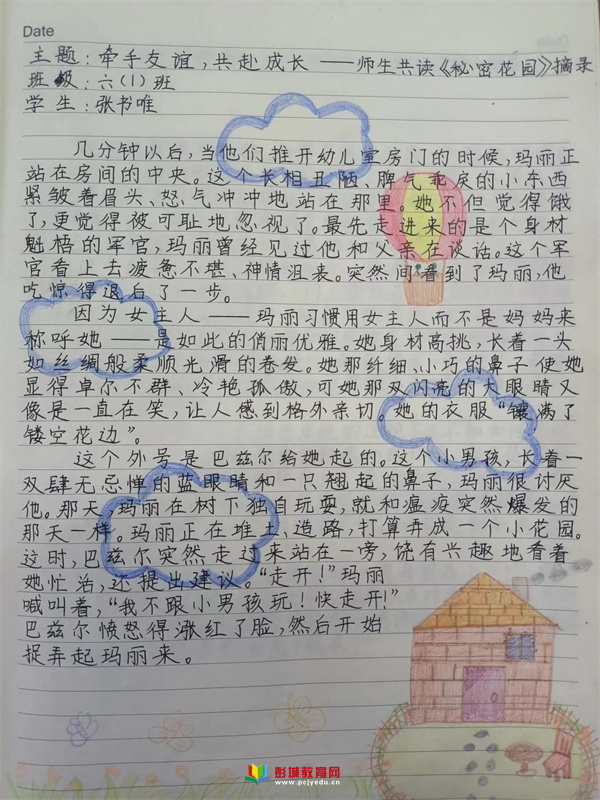 Date
主题：牵手友谊，共赴成长——师生共读《秘密花园》摘录
班级：六(1)班
学生：张书唯
几分钟以后，当他们推开幼儿室房门的时候，玛丽正
站在房间的中央。这个长相丑陋、脾气乖戾的小东西
紧皱着眉头、怒气冲冲地站在那里。她不但觉得饿
了，更觉得被可耻地忽视了。最先走进来的是个身材
魁梧的军官，玛丽曾经见过他和父亲在谈话。这个军
官看上去疲惫不堪、神情沮丧。突然间看到了玛丽，他
吃惊得退后了一步。
因为女主人——玛丽习惯用女主人而不是妈妈来
称呼她——是如此的俏丽优雅。她身材高挑，长着一头
如丝绸般柔顺光滑的卷发。她那纤细、小巧的鼻子使她
显得卓尔不群、冷艳孤傲，可她那双闪亮的大眼睛又
像是一直在笑，让人感到格外亲切。她的衣服“镶满了
镂空花边”。
这个外号是巴兹尔给她起的。这个小男孩，长着一
双肆无忌惮的蓝眼睛和一只翘起的鼻子，玛丽很讨厌
他。那天，玛丽在树下独自玩耍，就和瘟疫突然爆发的
那天一样。玛丽正在堆土、造路，打算弄成一个小花园。
这时，巴兹尔突然走过来站在一旁，饶有兴趣地看着
她忙活，还提出建议。“走开！”玛丽
喊叫着，“我不跟小男孩玩！快走开！”
巴兹尔愤怒得涨红了脸，然后开始
捉弄起玛丽来。
彭城教育网
www.pcjyedu.cn